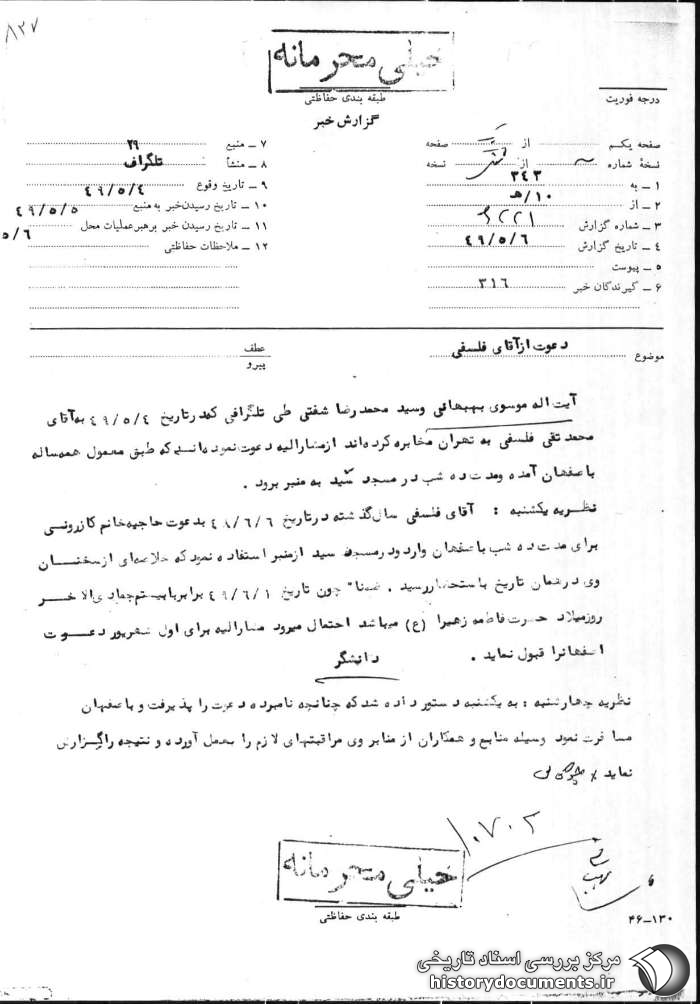 ۸۲۷
خیلی محرمانه
طبقه بندی حفاظتی
درجه فوریت
گزارش خبر
صفحه یکم از صفحه
نسخهٔ شماره از نسخه
۱ ـ به ۳۴۳
۲ ـ از ۱۰/هـ
۳ ـ شماره گزارش
۴ ـ تاریخ گزارش ۴۹/۵/۶
۵ ـ پیوست
۶ ـ گیرندگان خبر ۳۱۶
۷ ـ منبع ۲۹
۸ ـ منشأ تلگراف
۹ ـ تاریخ وقوع ۴۹/۵/۴
۱۰ ـ تاریخ رسیدن خبر به منبع ۴۹/۵/۵
۱۱ ـ تاریخ رسیدن خبر برهبر عملیات محل ۵/۶
۱۲ ـ ملاحظات حفاظتی
موضوع دعوت از آقای فلسفی
عطف
پیرو
آیت اله موسوی بهبهانی وسید محمدرضا شفتی طی تلگرافی که در تاریخ ۴۹/۵/۴ به آقای
محمد تقی فلسفی به تهران مخابره کرده‌اند از مشارالیه دعوت نموده‌اند که طبق معمول همه ساله
باصفهان آمده ومدت ده شب در مسجد سید به منبر برود .
نظریه یکشنبه : آقای فلسفی سال گذشته در تاریخ ۴۸/۶/۶ بدعوت حاجیه خانم کازرونی
برای مدت ده شب باصفهان وارد و در مسجد سید از منبر استفاده نمود که خلاصه‌ای از سخنان
وی در همان تاریخ باستحضار رسید . ضمنا" چون تاریخ ۴۹/۶/۱ برابر با بیستم جمادی‌الاخر
روز میلاد حضرت فاطمه زهرا (ع) میباشد احتمال میرود مشارالیه برای اول شهریور دعوت
اصفهانرا قبول نماید . دانشگر
نظریه چهارشنبه : به یکشنبه دستور داده شد که چنانچه نامبرده دعوت را پذیرفت و باصفهان
مسافرت نمود وسیله منابع و همکاران از منابر وی مراقبتهای لازم را بعمل آورده و نتیجه را گزارش
نماید
۱۰۷۰۲
خیلی محرمانه
طبقه بندی حفاظتی
۴۶-۱۳۰
مرکز بررسی اسناد تاریخی
historydocuments.ir